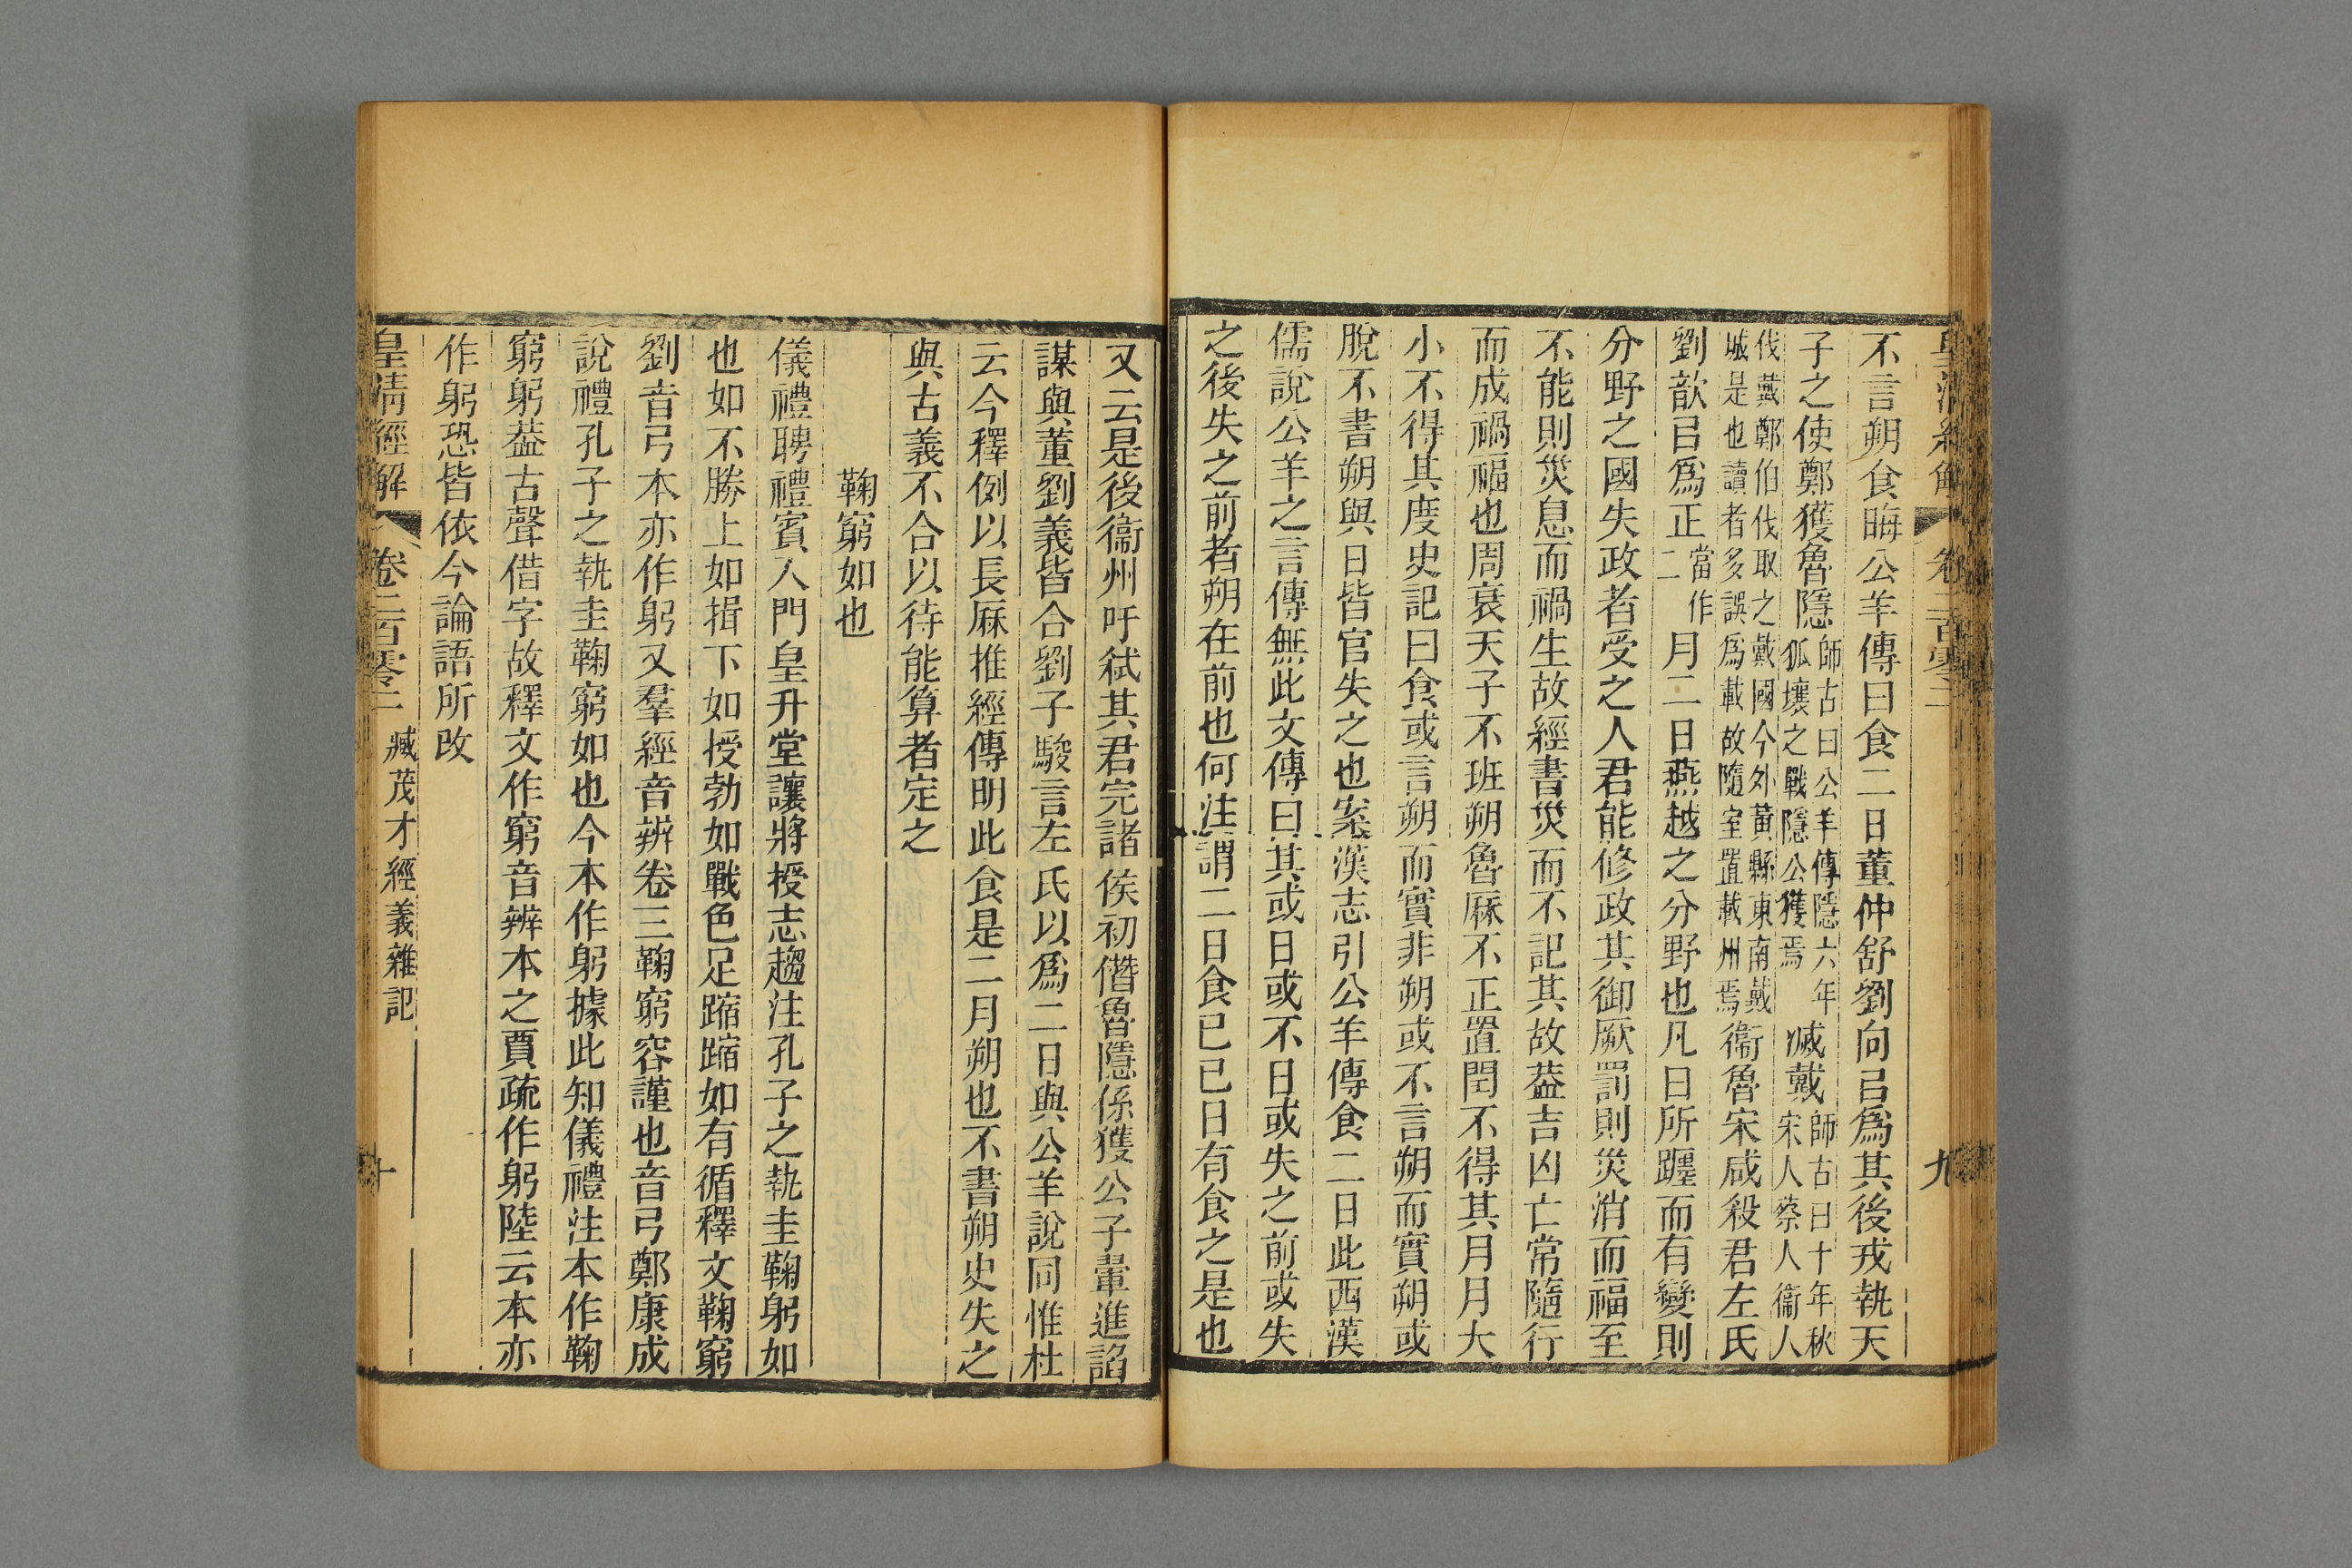 不言朔食晦公羊傳曰食二日董仲舒劉向㠯爲其後戎執天
子之使鄭獲魯隱師古曰公羊傳隱六年狐壤之戰隱公獲焉滅戴師古曰十年秋宋人蔡人衞人
伐戴鄭伯伐取之戴國今外黃縣東南戴城是也讀者多誤爲載故隨室置載州焉衞魯宋咸殺君左氏
劉歆㠯爲正當作二月二日燕越之分野也凡日所躔而有變則
分野之國失政者受之人君能修政共御厥罰則災消而福至
不能則災息而禍生故經書災而不記其故葢吉凶亡常隨行
而成禍福也周衰天子不班朔魯厤不正置閏不得其月月大
小不得其度史記曰食或言朔而實非朔或不言朔而實朔或
脫不書朔與日皆官失之也案漢志引公羊傳食二日此西漢
儒說公羊之言傳無此文傳曰其或日或不日或失之前或失
之後失之前者朔在前也何注謂二日食已巳日有食之是也
皇清經解
卷二百零二
九
又云是後衞州吁弒其君完諸侯初僭魯隱係獲公子翬進諂
謀與董劉義皆合劉子駿言左氏以爲二日與公羊說同惟杜
云今釋例以長厤推經傳明此食是二月朔也不書朔史失之
與古義不合以待能算者定之
鞠窮如也
儀禮聘禮賓入門皇升堂讓將授志趨注孔子之執圭鞠躬如
也如不勝上如揖下如授勃如戰色足蹜蹜如有循釋文鞠窮
劉音弓本亦作躬又羣經音辨卷三鞠窮容謹也音弓鄭康成
說禮孔子之執圭鞠窮如也今本作躬據此知儀禮注本作鞠
窮躬葢古聲借字故釋文作窮音辨本之賈疏作躬陸云本亦
作躬恐皆依今論語所改
皇清經解
卷二百零二
臧茂才經義雜記
十